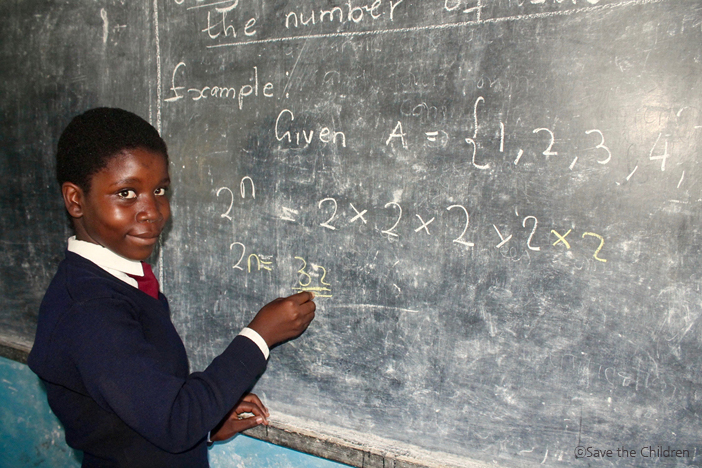 the number of
Example
Given A = {1, 2, 3, 4,
2ⁿ = 2 × 2 × 2 × 2 × 2
2ⁿ = 32
©Save the Children